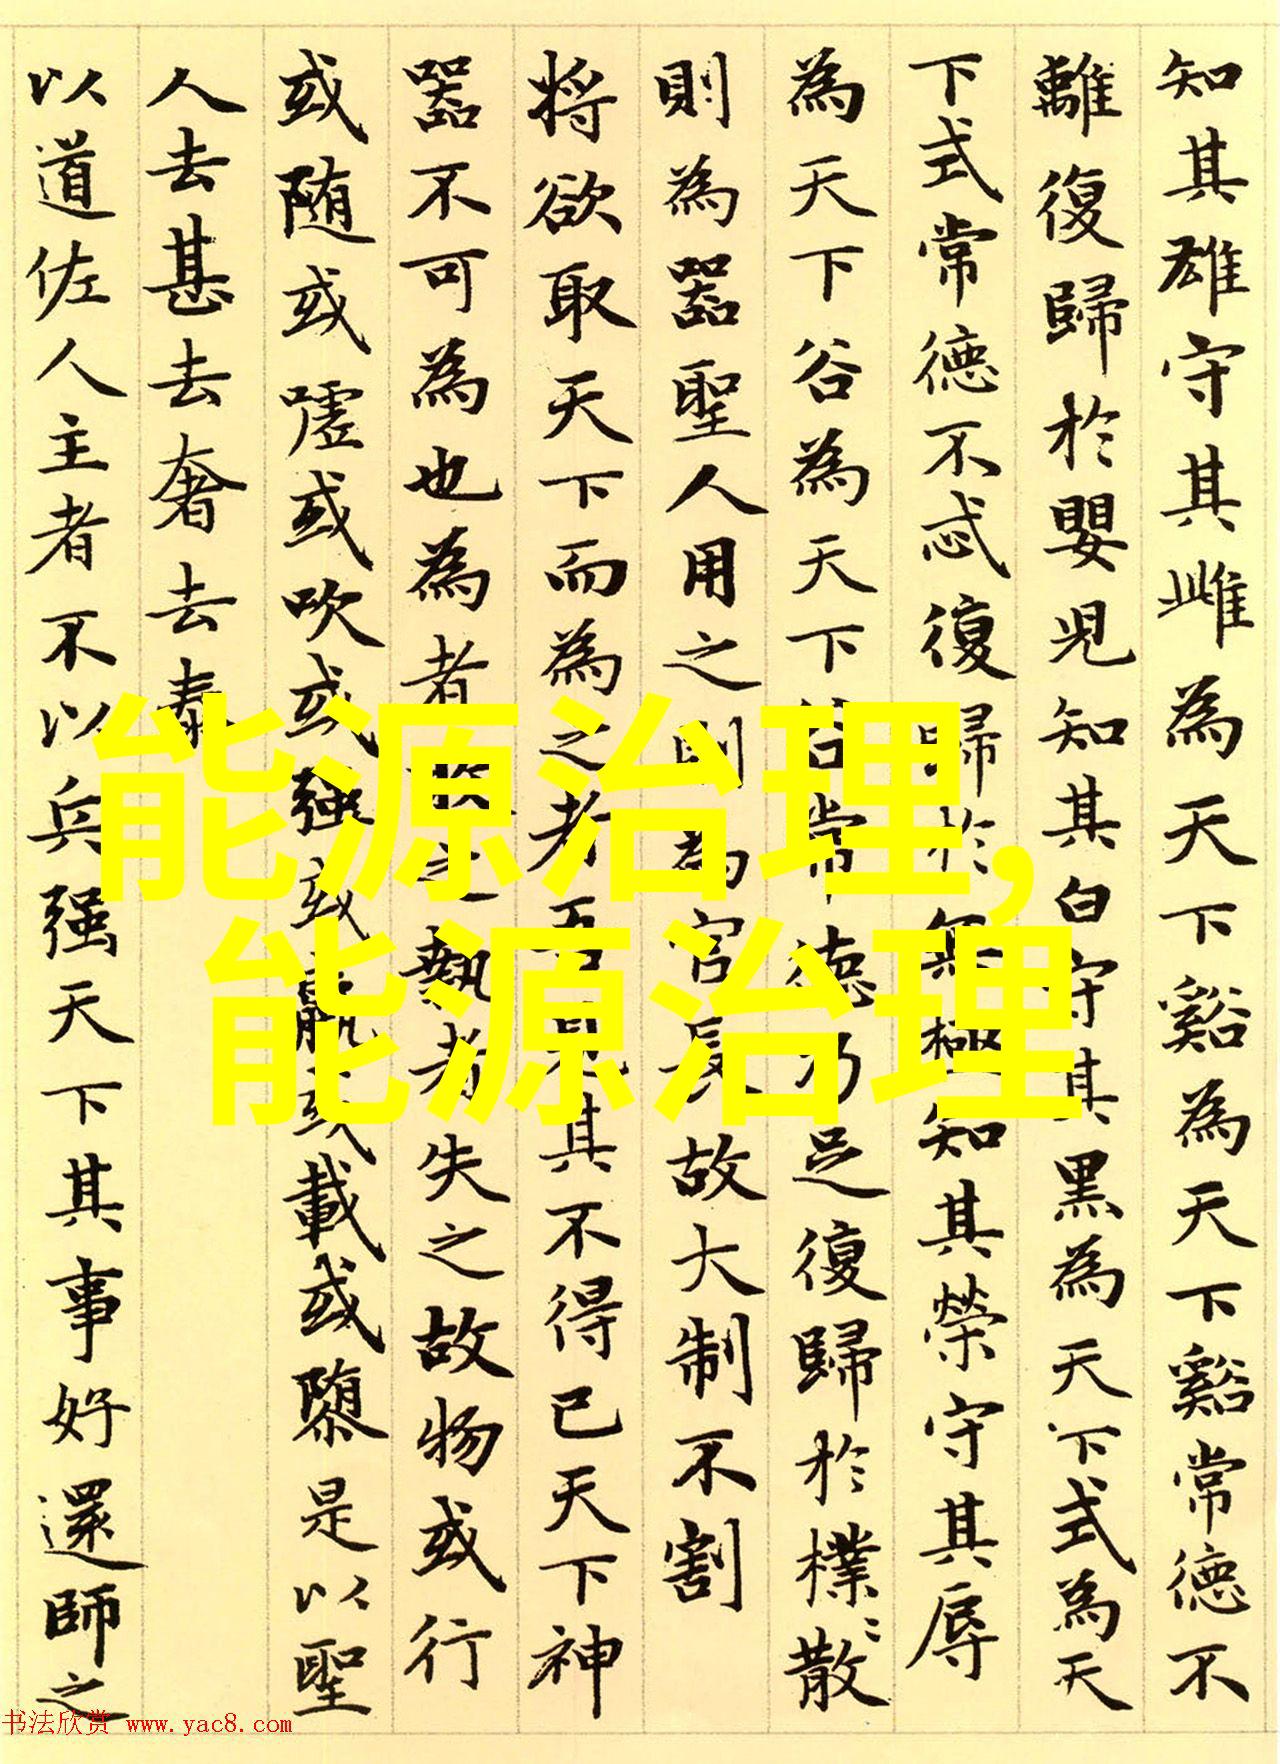 知其雄守其雌為天下谿為天下谿常德不
離復歸於嬰児知其白守其黒為天下式為天
下式常德不忒復歸於無極知其榮守其辱
為天下谷為天下谷常德乃足復歸於樸〻散
則為器聖人用之則為官長故大制不割
将欲取天下而為之者吾見其不得已天下神
器不可為也為者敗之執者失之故物或行
或随或嘘或吹或强或羸或載或隳是以聖
人去甚去奢去泰
以道佐人主者不以兵强天下其事好還師之
能源治理,
能源治理
书法欣赏 www.yac8.com